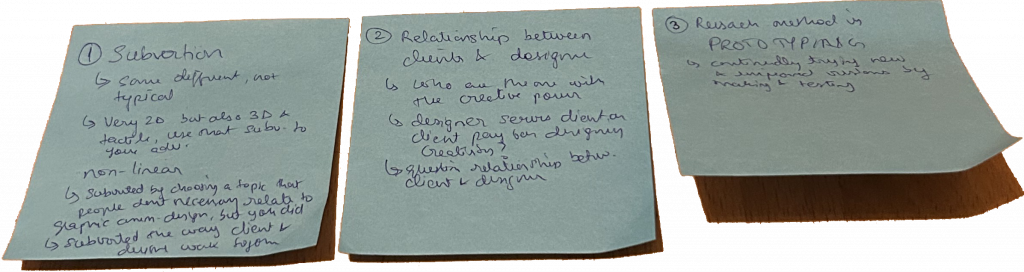 ① Subvertion
↳ same different, not
typical
↳ Very 2D but also 3D &
tactile, use that subv. to
your adv.
non-linear
↳ Subverted by choosing a topic that
people dont necessary relate to
graphic comm-design, but you did
↳ subverted the way client &
work
② Relationship between
clients & designer
↳ who are the one with
the creative power
↳ designer serves client or
client pay for designers
creations?
↳ question relationship betw.
client & designer
③ Research method is
PROTOTYPING
↳ continuously trying new
& improved versions by
making & testing